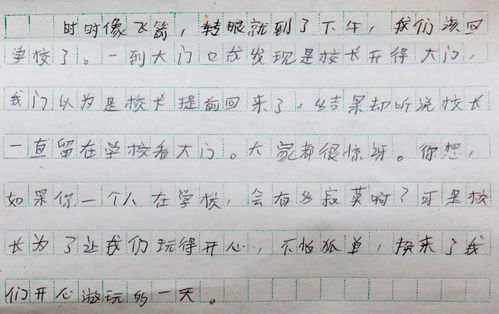 时时像飞箭，转眼就到了下午，我们该回
学校了。一到大门口我发现是校长开得大门，
我门以为是校长提前回来了，结果却听说校长
一直留在学校看大门。大家都很惊讶。你想，
如果你一个人在学校，会有多寂莫啊？可是校
长为了让我们玩得开心，不怕孤单，换来了我
们开心游玩的一天。